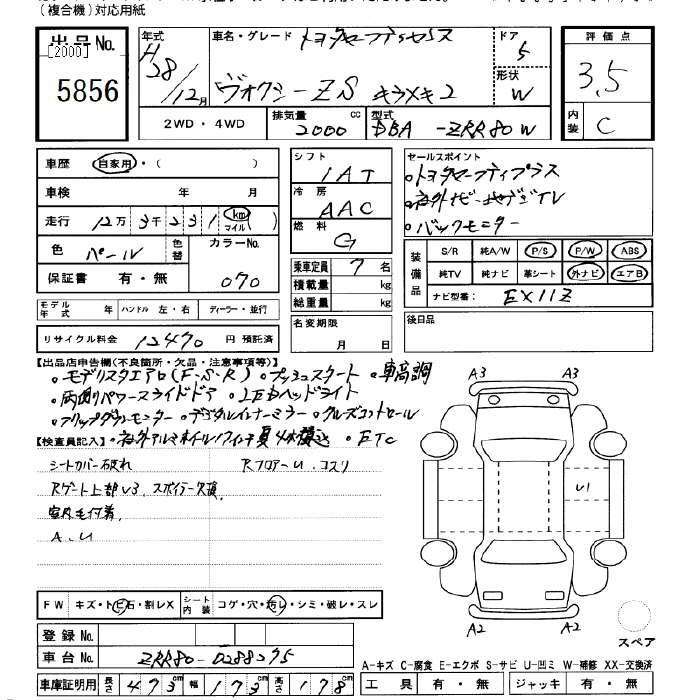 (複合機)対応用紙
出品No. 年式 車名・グレード トヨタセーフティセンス ドア 5 評価点
[2000] H28/12月 ヴォクシーZS キラメキ2 形状 W 3.5
5856
2WD・4WD 排気量 2000 cc 型式 DBA -ZRR80W 内装 C
車歴 自家用・( ) シフト IAT セールスポイント
車検 年 月 冷房 AAC 。トヨタセーフティプラス
走行 12万3千231 km マイル 燃料 G 。社外ナビ 地デジTV
色 パール 色替 カラーNo. 070 。バックモニター
保証書 有・無 乗車定員 7名
積載量 kg
総重量 kg
装備品 S/R 純A/W P/S P/W ABS
純TV 純ナビ 革シート 外ナビ エアB
ナビ型番: EX11Z
モデル年式 年 ハンドル 左・右 ディーラー・並行
名変期限 月 日 後日品
リサイクル料金 12470 円 預託済
【出品店申告欄(不良箇所・欠品・注意事項等)】
。モデリスタエアロ(F・S・R) 。プッシュスタート 。車高調
。両側パワースライドドア 。LEDヘッドライト
。フリップダウンモニター 。デジタルインナーミラー 。クルーズコントロール
【検査員記入】 。社外アルミホイル 夏4本積込 。ETC
シートカバー破れ RフロアーU.コスリ
Rゲート上部U3、スポイラー欠損
室内毛付着
A.U
A3 A3
U1
A2 A2
スペア
FW キズ・トビ石・割レX シート内装 コゲ・穴・汚レ・シミ・破レ・スレ
登録No.
車台No. ZRR80-0288275
A-キズ C-腐食 E-エクボ S-サビ U-凹ミ W-補修 XX-交換済
車庫証明用 長さ 473cm 幅 173cm 高さ 178cm 工具 有・無 ジャッキ 有・無